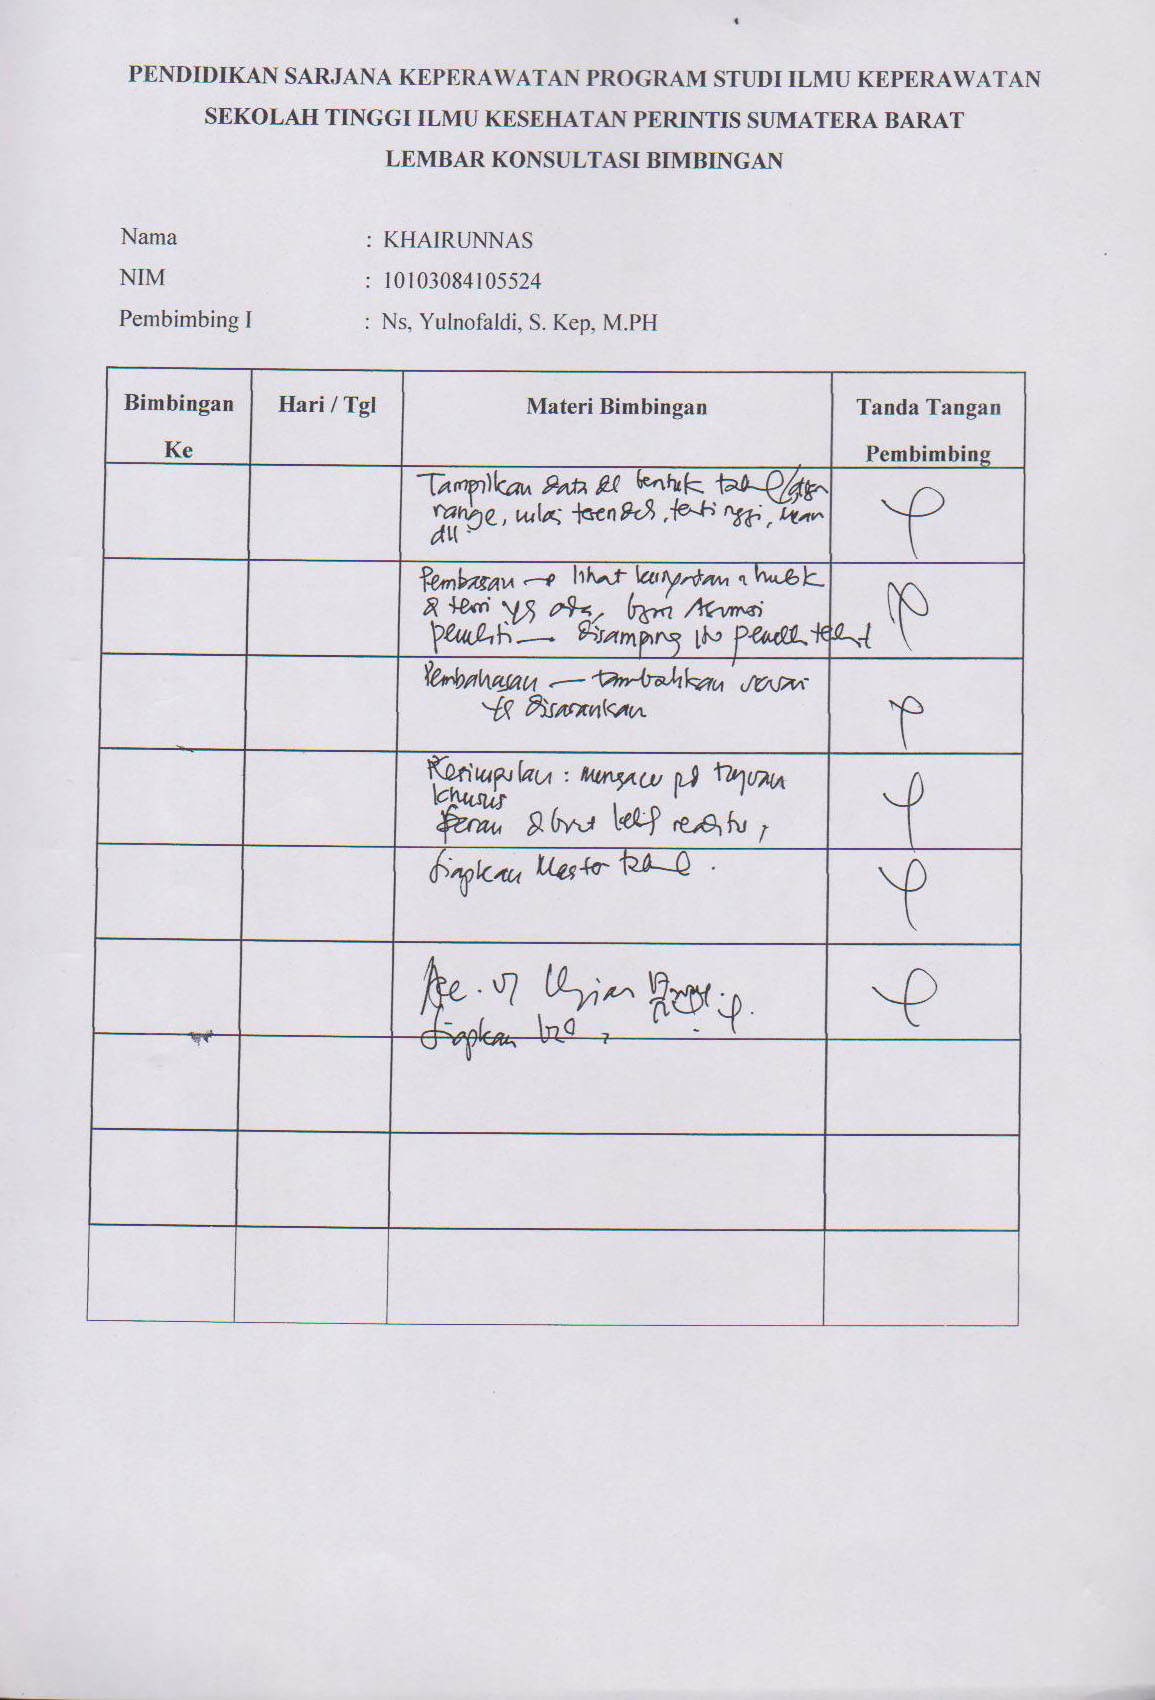 PENDIDIKAN SARJANA KEPERAWATAN PROGRAM STUDI ILMU KEPERAWATAN
SEKOLAH TINGGI ILMU KESEHATAN PERINTIS SUMATERA BARAT
LEMBAR KONSULTASI BIMBINGAN
Nama : KHAIRUNNAS
NIM : 10103084105524
Pembimbing I : Ns, Yulnofaldi, S. Kep, M.PH
Bimbingan Hari / Tgl Materi Bimbingan Tanda Tangan
Ke Pembimbing
Tampilkan data dl bentuk tabel
range, nilai terendah, tertinggi, mean
dll
lihat
& teori yg ada,
peneliti — disamping itu
Pembahasan — tambahkan sesuai
yg disarankan
Kesimpulan : mengacu pd tujuan
khusus
Saran
Siapkan Master tabel .
Acc. Ujian
Siapkan